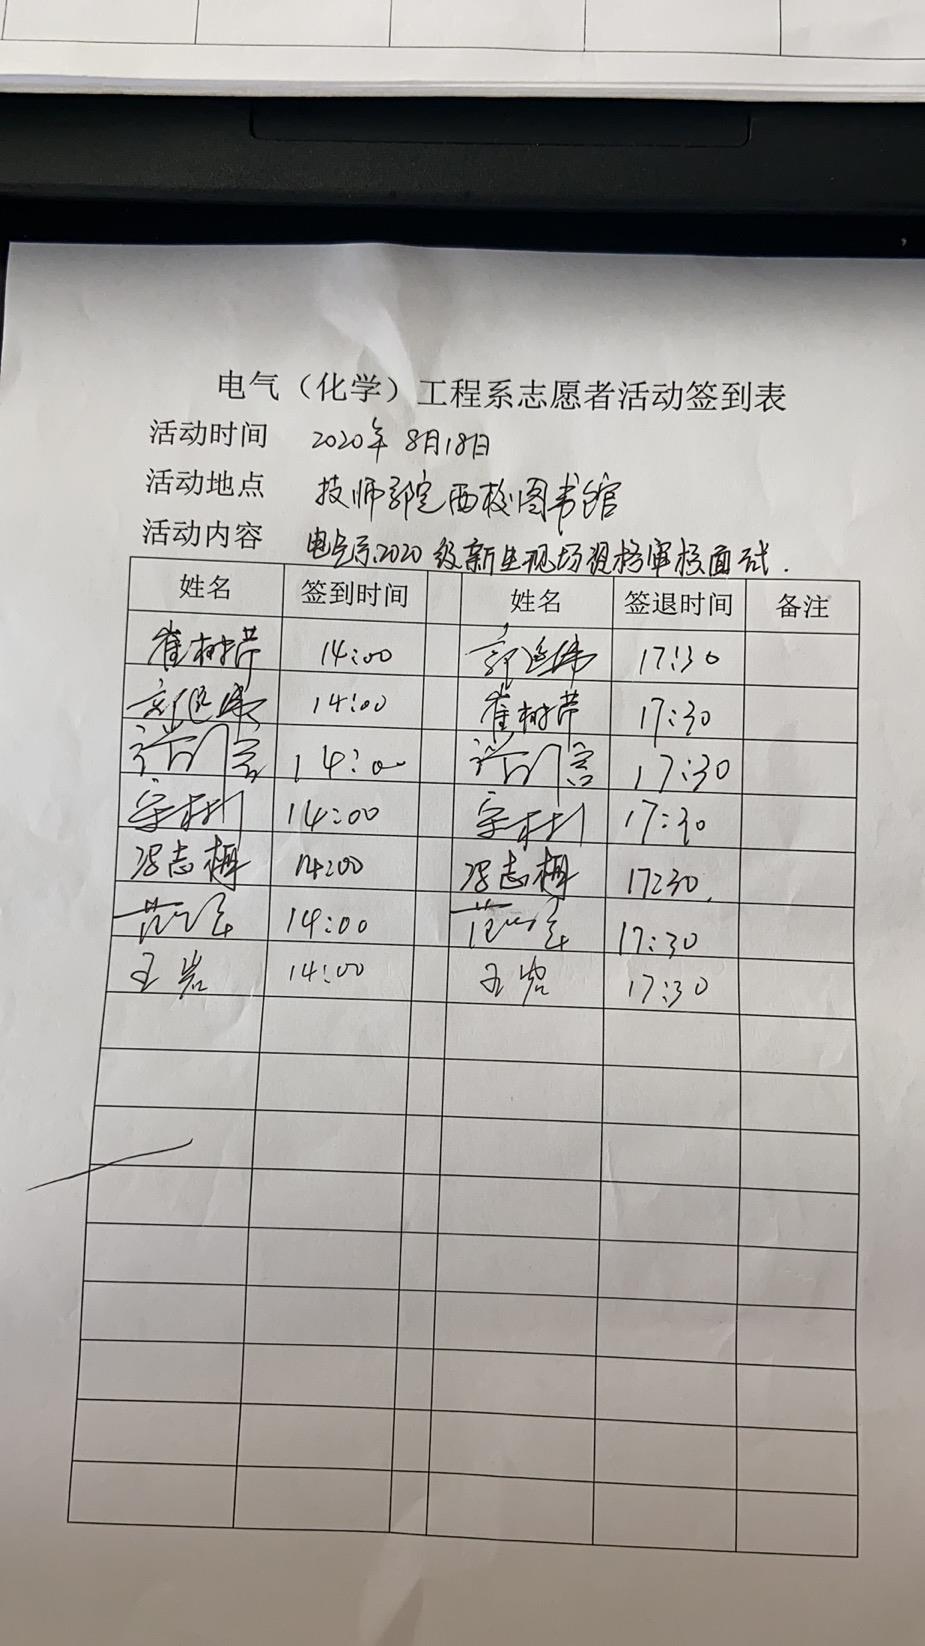 电气（化学）工程系志愿者活动签到表
活动时间 2020年8月18日
活动地点 技师学院西校图书馆
活动内容 电气系2020级新生现场资格审核面试.
姓名 签到时间 姓名 签退时间 备注
崔树芹 14:00 17:30
14:00 崔树芹 17:30
14:00 17:30
14:00 17:30
冯志梅 14:00 冯志梅 17:30.
范 14:00 范 17:30
王岩 14:00 王岩 17:30